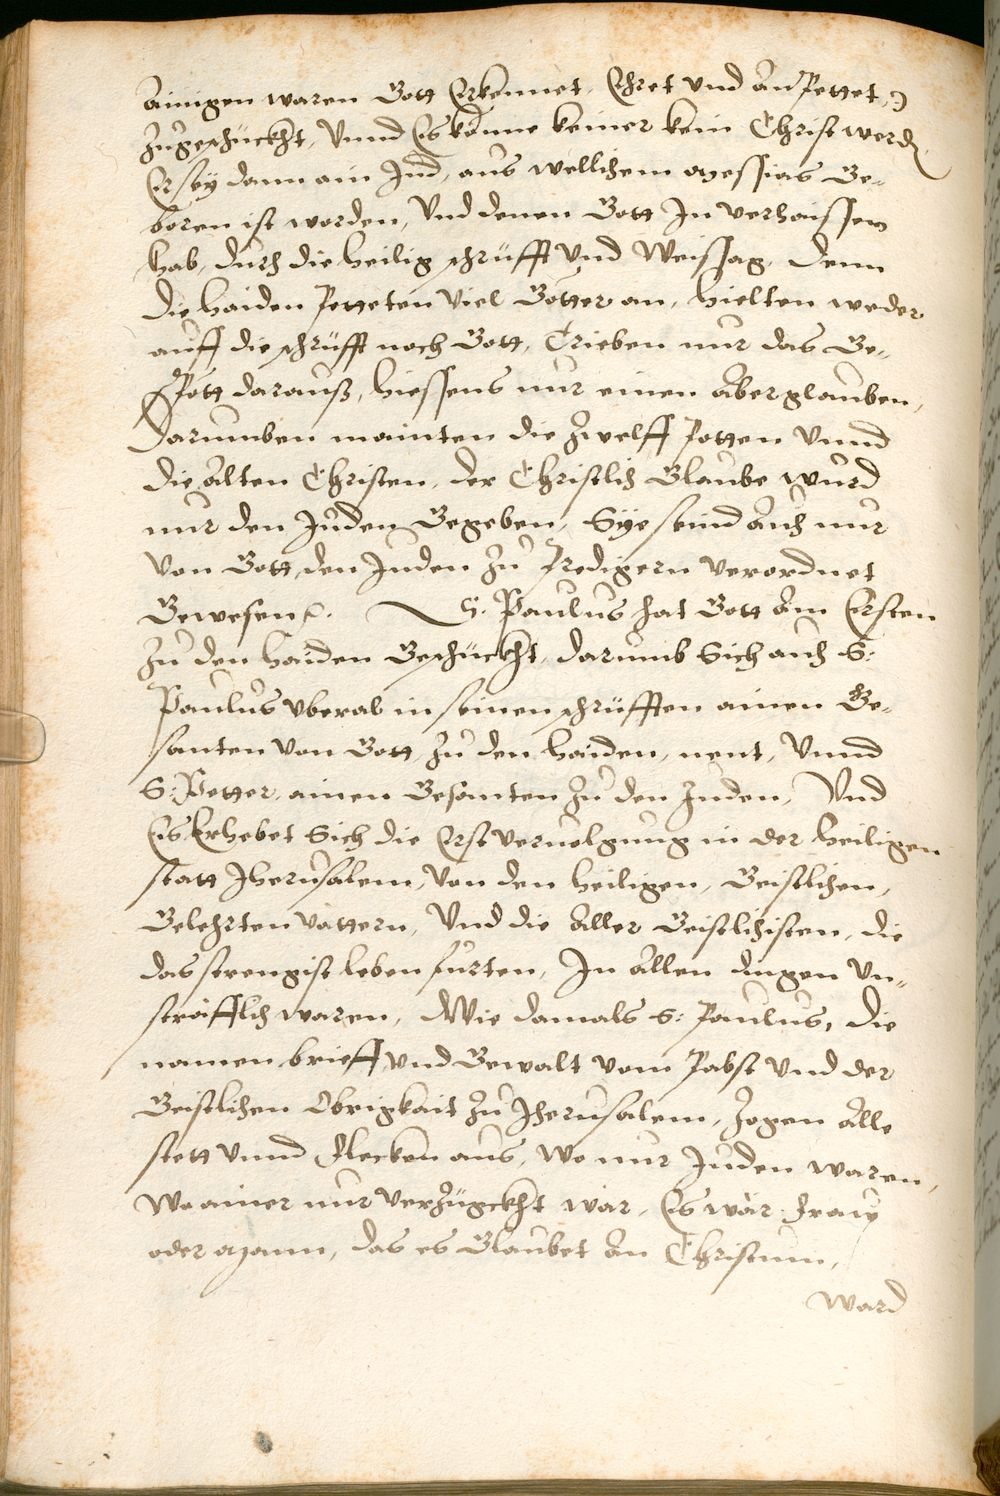 ainigen waren Gott Erkennet, Ehret und anPettet,)
Zugeschückht, Vnnd Es könne keiner kein Christ werdn
Er sey dann ain Jud, aus wellichem Messias Ge-
boren ist worden, Und denen Gott In verhaissen
hab, durch die heilig schrüfft und Weissag, Denn
die haiden Petteten viel Götter an, hielten weder
auff die schrüfft noch Gott, Trieben nur das Ge-
spött darauß, hiessens nur einen aberglauben,
Darumben mainten die Zwelff Potten Vnnd
die alten Christen, der Christlich Glaube wurd
nur den Juden Gegeben, Sye seind auch nur
von Gott, den Juden zu Predigern verordnet
Gewesen. S. Paulus hat Gott am Ersten
zu den haiden Geschückht, darumb Sich auch S:
Paulus vberal in seinen schrüfften ainen Ge-
santen von Gott zu den haiden, nent, Vnnd
S: Petter, ainen Gesanten zu den Juden, Und
Es Erhebet Sich die Erst veruolgung in der heiligen
statt Jherusalem, von den heiligen, Geistlichen,
Gelehrten vättern, Und die aller Geistlichisten, die
das strengist leben furten, In allen dingen Un-
sträfflich waren, Wie damals S: Paulus, die
namen brieff und Gewalt vom Pabst Und der
Geistlichen Obrigkait zu Jherusalem, zogen alle
stett Vnnd Flecken aus, Wo nur Juden waren,
Wo ainer nur verzügckht war, Es wär Fraw
oder Mann, das es Glaubet an Christum,
ward